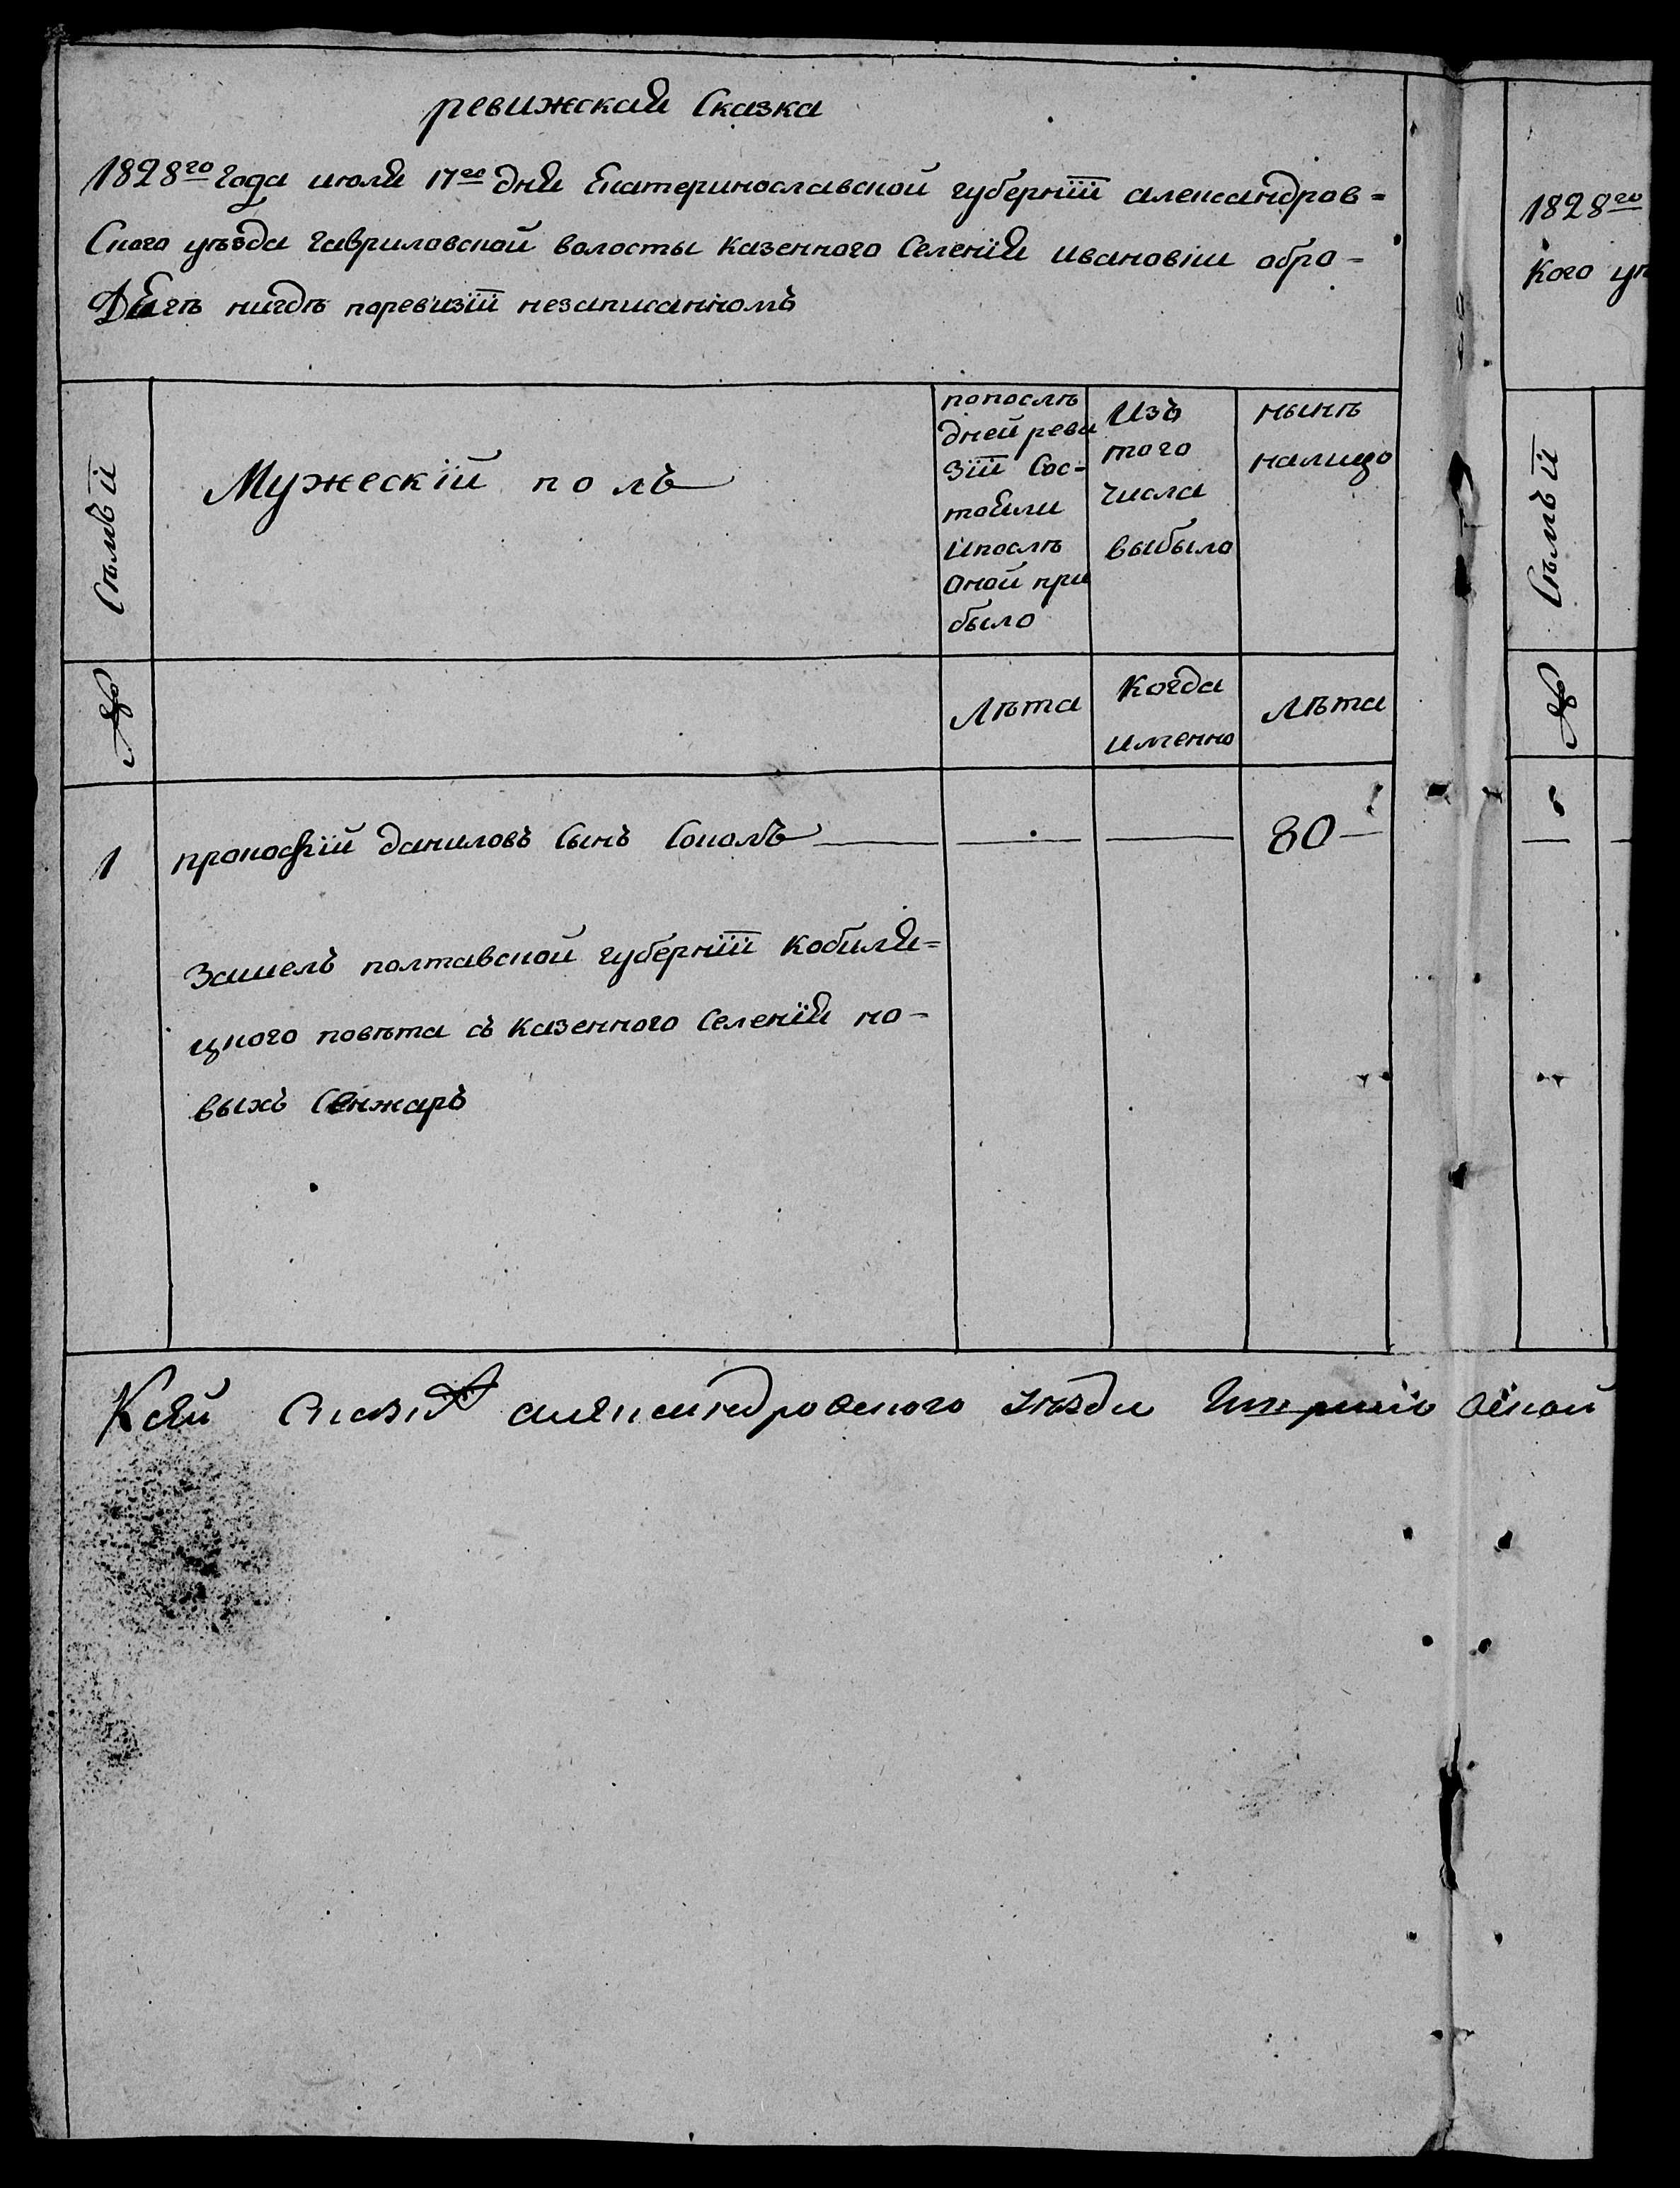 ревижская Сказка
1828го Года июля 17го дня Екатеринославской губернїи александров=
Ского уѣзда гавриловской волосты казенного Селенїя ивановки обро-
Дягѣ нигдѣ поревизїи незаписанномъ
1828го
Кого уѣ
Сѣмъй
Мужескїй полъ
попослѣ
дней реви
зїи Сос=
тояли
ипослѣ
оной при
было
Изъ
того
числа
выбыло
нынѣ
налицо
Сѣмъй
№
Лѣта
Когда
именно
Лѣта
№
1 прокофїй даниловъ Сынъ Соколъ — — — 80 —
Зашелъ полтавской губернїи кобиля=
цкого повѣта съ казенного Селенїя но-
выхъ Сенжаръ
К сей Сказкѣ александровского уѣзда